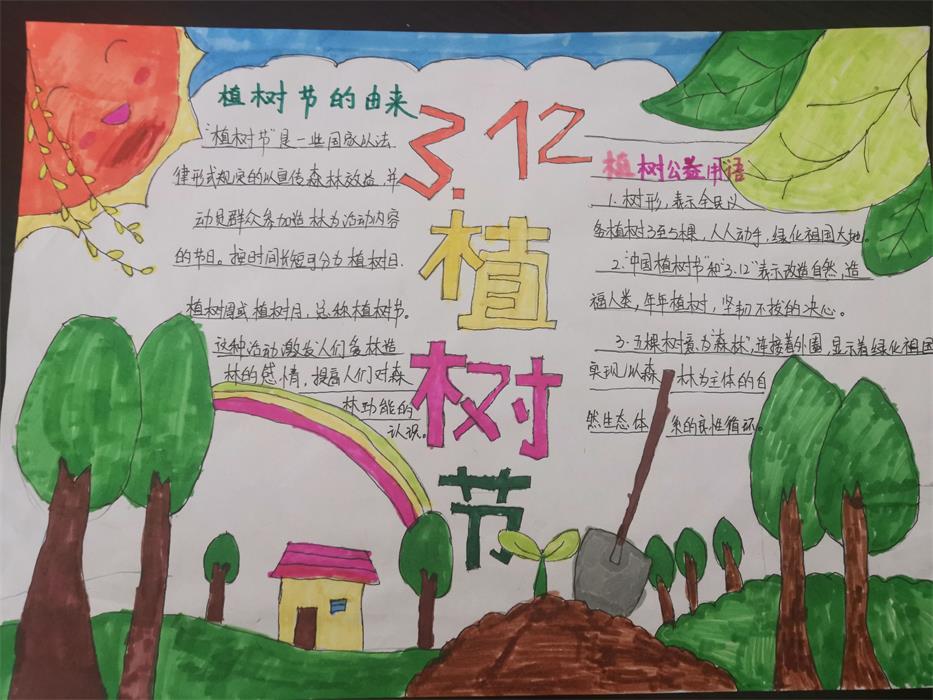 植树节的由来
"植树节"是一些国家以法
律形式规定的以宣传森林效益,并
动员群众参加造林为活动内容
的节日。按时间长短可分为植树日、
植树周或植树月,总称植树节。
这种活动激发人们爱林造
林的感情,提高人们对森
林功能的
认识。
3.12
植
树
节
植树公益用语
1.树形,表示全民义
务植树3至5棵,人人动手,绿化祖国大地。
2."中国植树节"和"3.12"表示改造自然,造
福人类,年年植树,坚韧不拔的决心。
3.五棵树意为"森林",连接着外圈,显示着绿化祖国
实现以森 林为主体的自
然生态体 系的良性循环。